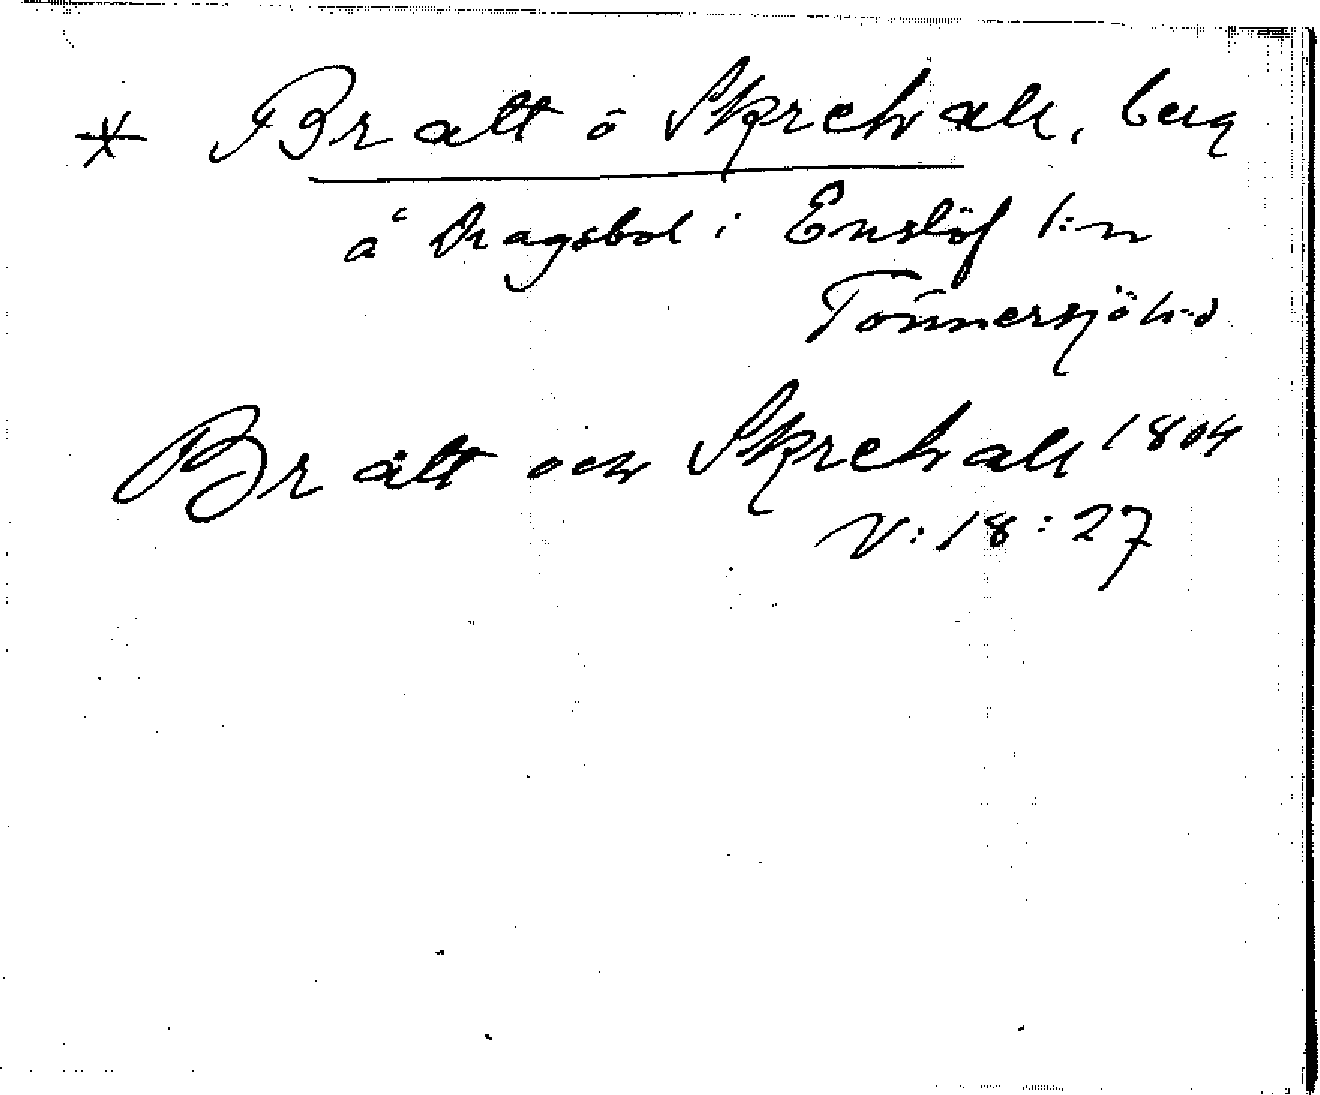 * Bratt o Skrehall, berg
å Dragsbol i Enslöf s:n
Tönnersjö h-d
Brätt och Skrehall 1804
V:18:27